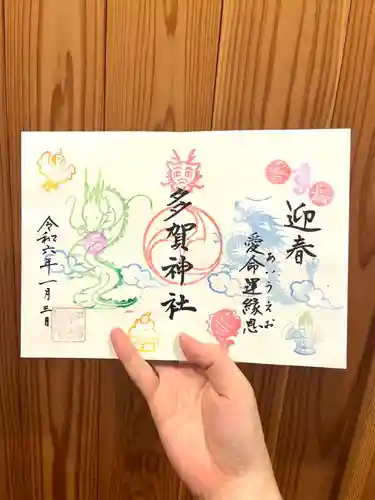 迎春
愛命運縁恩
あいうえお
多賀神社
令和六年一月三日